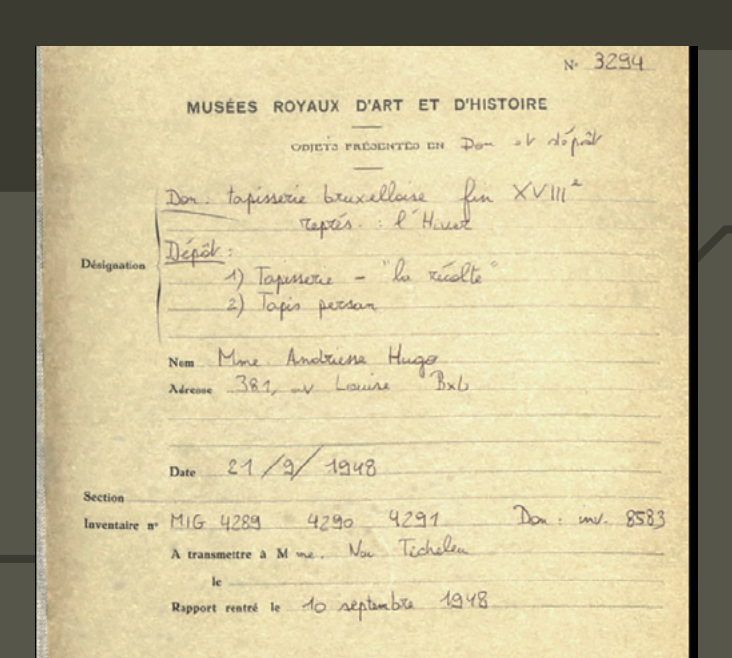 N° 3294
MUSÉES ROYAUX D'ART ET D'HISTOIRE
OBJETS PRÉSENTÉS EN Don et dépôt
Don : tapisserie bruxelloise fin XVIIIe
représ. : l'Hiver
Désignation
Dépôt :
1) Tapisserie - "la récolte"
2) Tapis persan
Nom Mme Andriesse Hugo
Adresse 381, av Louise Bxl
Date 21/9/1948
Section
Inventaire n° MIG 4289 4290 4291 Don : inv. 8583
A transmettre à Mme.
le
Rapport rentré le 10 septembre 1948